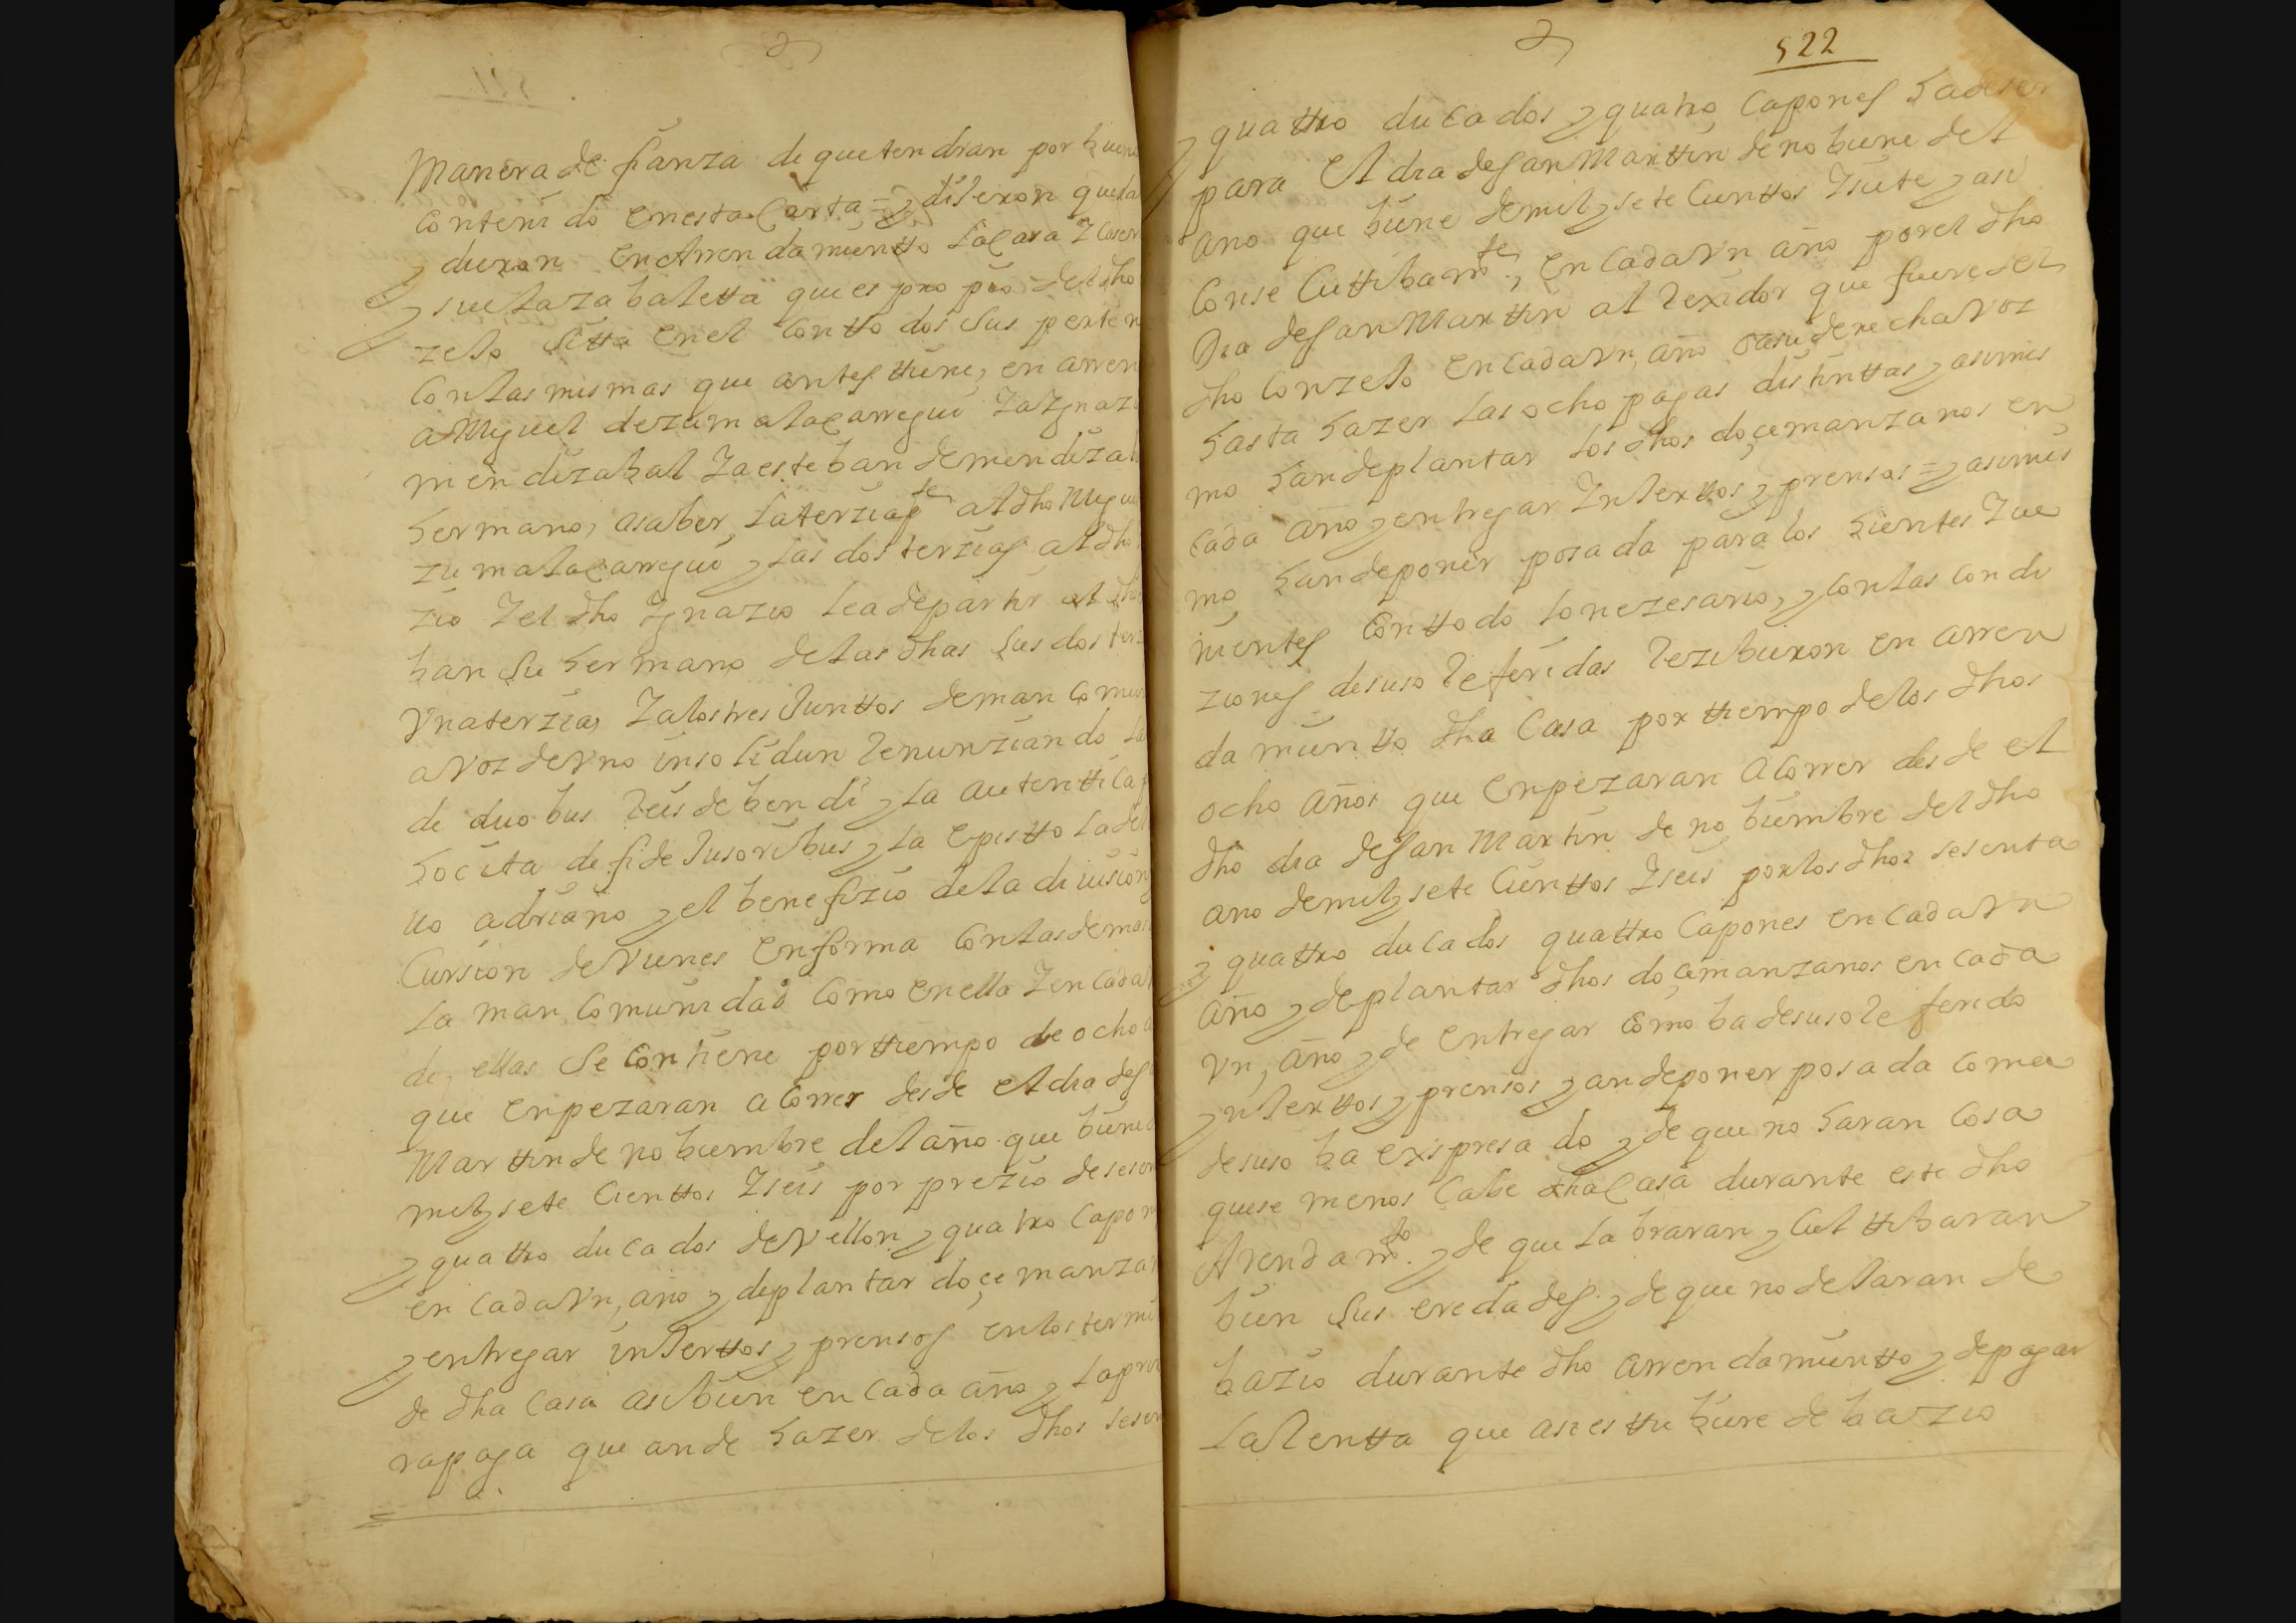 manera de fianza de que tendran por buen
contenido en esta Carta = y dixeron queda
y dieron en Arrendamiento la Cara Y Caser
y suelazabaletta que es propio del dho
zejo sitta en el con ttodos sus perten
con las mismas que antes ttiene, en arren
a Miguel de zumalacarregui Y a Ygnazi
mendizabal Y a esteban de mendizab
hermano, asaber, la terzia pte al dho Migu
zumalacarregui y las dos terzias al dho
zio Y el dho Ygnazio lea departir al dho
ban su hermano de las dhas sus dos terz
Vna terzia, Y a los tres Junttos de man comun
a voz de Vno insolidun Renunziando la
de duobus Reis debendi y la autenttica
hocita de fide Jusoribus y la epistto la del
uo adriano y el benefizio de la diuision
Cursion de Vienes en forma con las demas
la mancomunidad como en ella Y en cada
de ellas se contiene por ttiempo de ocho a
que enpezaran a correr desde el dia de S
Marttin de nobiembre del año que biene
mil y sete cienttos Y seis por prezio de sesen
y quattro ducados de Vellon y quatro capon
en cada Vn, año y de plantar doçe manzan
y entregar inJerttos y prensos en los termi
de dha casa asi bien en cada año y la prim
ra paga que an de hazer de los dhos sesen
522
y quattro ducados y quatro Capones ha de ser
para el dia de San Marttin de nobiene del
ano que biene de mil y sete Cienttos Y siete y asi
conse Cuttibamte, en cada Vn año por el dho
Dia de San Marttin al Rexidor que fuere del
dho Conzejo en cada Vn, año o a su derecha Voz
hasta hazer las ocho pagas distinttas y asimis
mo han de plantar los dhos doçe manzanos en
cada año y entregar Ynjerttos y prensos = y asimis
mo han de poner posada para los hientes Y ue
nientes Con ttodo lo nezesario, y con las condi
ziones de suso Referidas Rezibieron en arren
damientto dha Casa por ttiempo de los dhos
ocho años que enpezaran a correr desde el
dho dia de San Martin de nobiembre del dho
ano de mil y sete Cienttos Y seis por los dhos sesenta
y quattro ducados quattro Capones en cada Vn
año y de plantar dhos doçe manzanos en cada
Vn, año y de entregar como ba de suso Referido
ynJerttos y prensos y an de poner posada como
de suso ba expresado y de que no haran cosa
que se menos Cabe dha Casa durante este dho
Arendamto. y de que labraran y cul ttibaran
bien sus eredades y de que no dejaran de
bazio durante dho arrendamientto y de pagar
la Rentta que asi esttubiere de bazio